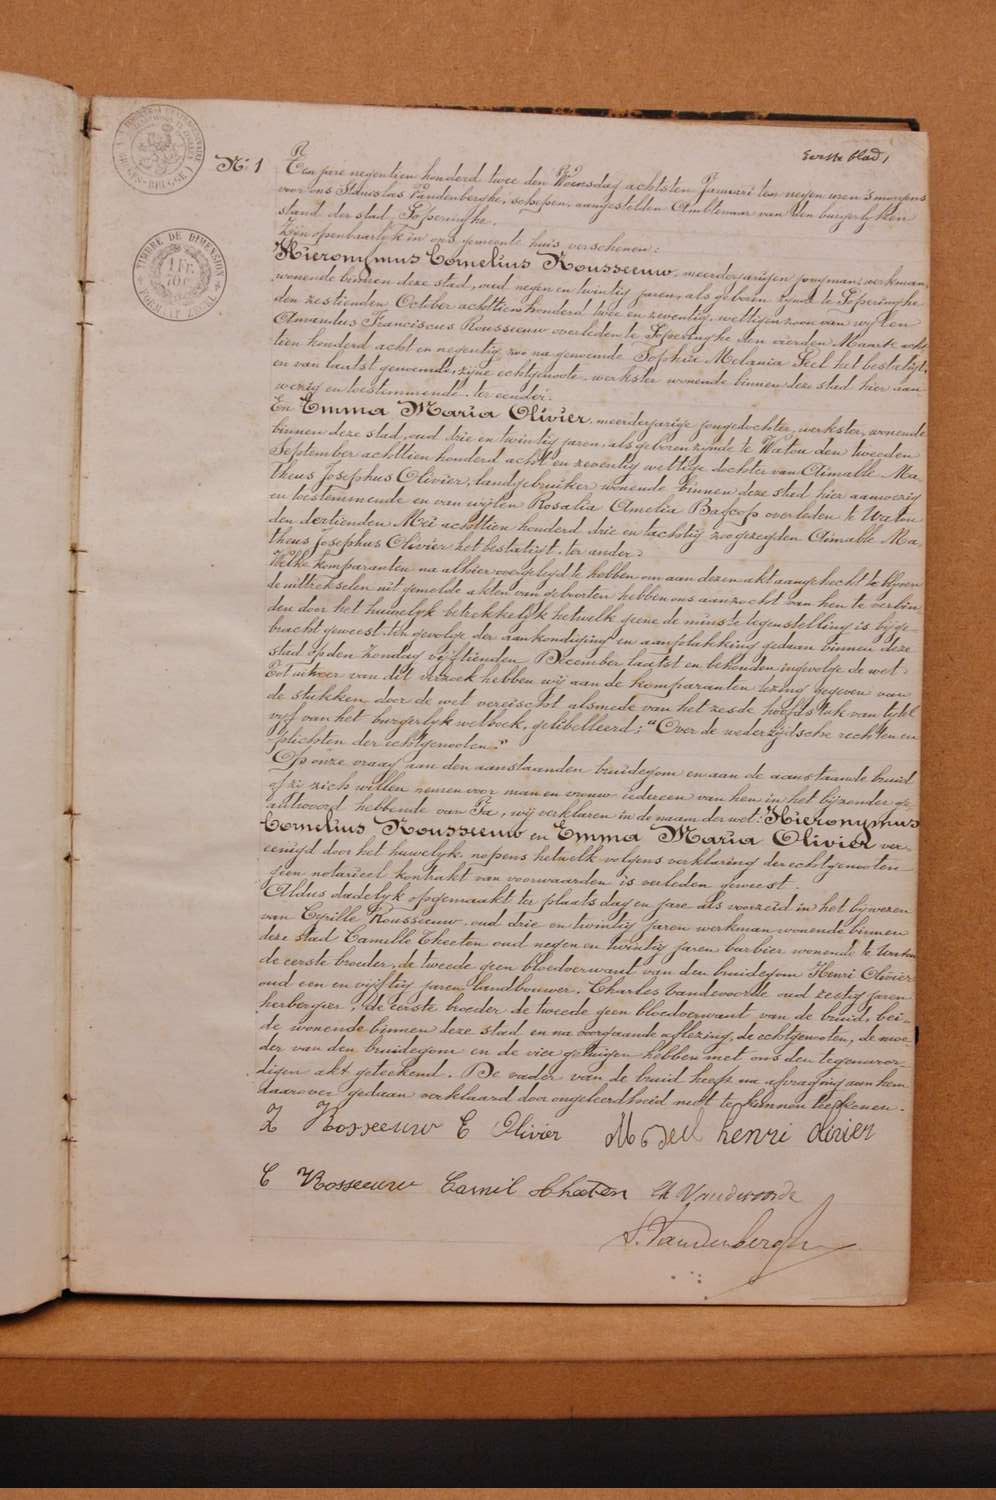 Eerste blad 1
TIMBRE DE DIMENSION
1 FR.
10 C.
ZEGEL IN FORMAAT
BRUGES-BRUGGE
N: 1
Ten jare negentien honderd twee den Woensdag achtsten Januari ten negen uren 's morgens
voor ons Stanislas Vandenberghe, schepen, aangestelden Ambtenaar van den burgerlyken
stand der stad Poperinghe.
Zijn openbaarlyk in ons gemeente huis verschenen:
Hieronymus Cornelius Rousseeuw, meerderjarigen jongman, werkman,
wonende binnen deze stad, oud negen en twintig jaren, als geboren zynde te Poperinghe
den zestienden October achttien honderd twee en zeventig, wettigen zoon van wylen
Amandus Franciscus Rousseeuw overleden te Poperinghe den vierden Maart acht
tien honderd acht en negentig, zoo na genoemde Sophia Melania Seel het bestatigt,
en van laatst genoemde, zijne echtgenoote, werkster wonende binnen deze stad hier aan
wezig en toestemmende. ter eender.
En Emma Maria Olivier, meerderjarige jongedochter, werkster, wonende
binnen deze stad, oud drie en twintig jaren, als geboren zynde te Watou den tweeden
September achttien honderd acht en zeventig wettige dochter van Aimable Ma-
theus Josephus Olivier, landgebruiker wonende binnen deze stad hier aanwezig
en toestemmende en van wijlen Rosalia Amelia Bafcop overleden te Watou
den dertienden Mei achttien honderd drie en tachtig zoo gezegden Aimable Ma-
theus Josephus Olivier het bestatigt. ter ander.
Welke komparanten na alhier overgelegd te hebben om aan dezen akt aangehecht te blyven
de uittrekselen uit gemelde akten van geboorten hebben ons aanzocht van hen te verbin
den door het huwelyk betrekkelyk hetwelk geene de minste tegenstelling is byge-
bracht geweest ten gevolge der aankondiging en aanplakking gedaan binnen deze
stad op den Zondag vijftienden December laatst en behouden ingevolge de wet.
Tot uitvoer van dit verzoek hebben wij aan de komparanten lezing gegeven van
de stukken door de wet vereischt alsmede van het zesde hoofdstuk van tytel
vyf van het burgerlyk wetboek, getibelleerd: "Over de wederzydsche rechten en
plichten der echtgenooten."
Op onze vraag aan den aanstaanden bruidegom en aan de aanstaande bruid
of zij zich willen nemen voor man en vrouw iedereen van hen in het bijzonder ge-
antwoord hebbende van Ja, wij verklaren in de naam der wet: Hieronymus
Cornelius Rousseeuw en Emma Maria Olivier ver-
eenigd door het huwelyk. nopens hetwelk volgens verklaring der echtgenooten
geen notarieel kontrakt van voorwaarden is verleden geweest.
Aldus dadelyk opgemaakt ter plaats dag en jare als voorzeid in het bywezen
van Cyrille Rousseeuw, oud drie en twintig jaren werkman wonende binnen
deze stad Camille Theeten oud negen en twintig jaren barbier wonende te Watou
de eerste broeder, de tweede geen bloedverwant van den bruidegom Henri Olivier
oud een en vijftig jaren landbouwer, Charles Vandevoorde oud zestig jaren
herbergier, de eerste broeder de tweede geen bloedverwant van de bruid, bei-
de wonende binnen deze stad en na voorgaande aflezing, de echtgenooten, de moe
der van den bruidegom en de vier getuigen hebben met ons den tegenwoor-
digen akt geteekend. De vader van de bruid heeft na afvraging aan hem
daarover gedaan verklaard door ongeleerdheid niet te kunnen teekenen.
Rosseeuw E Olivier M Seel henri olivier
C Rosseeuw Camil Theeten Ch Vandevoorde
S. Vandenberghe